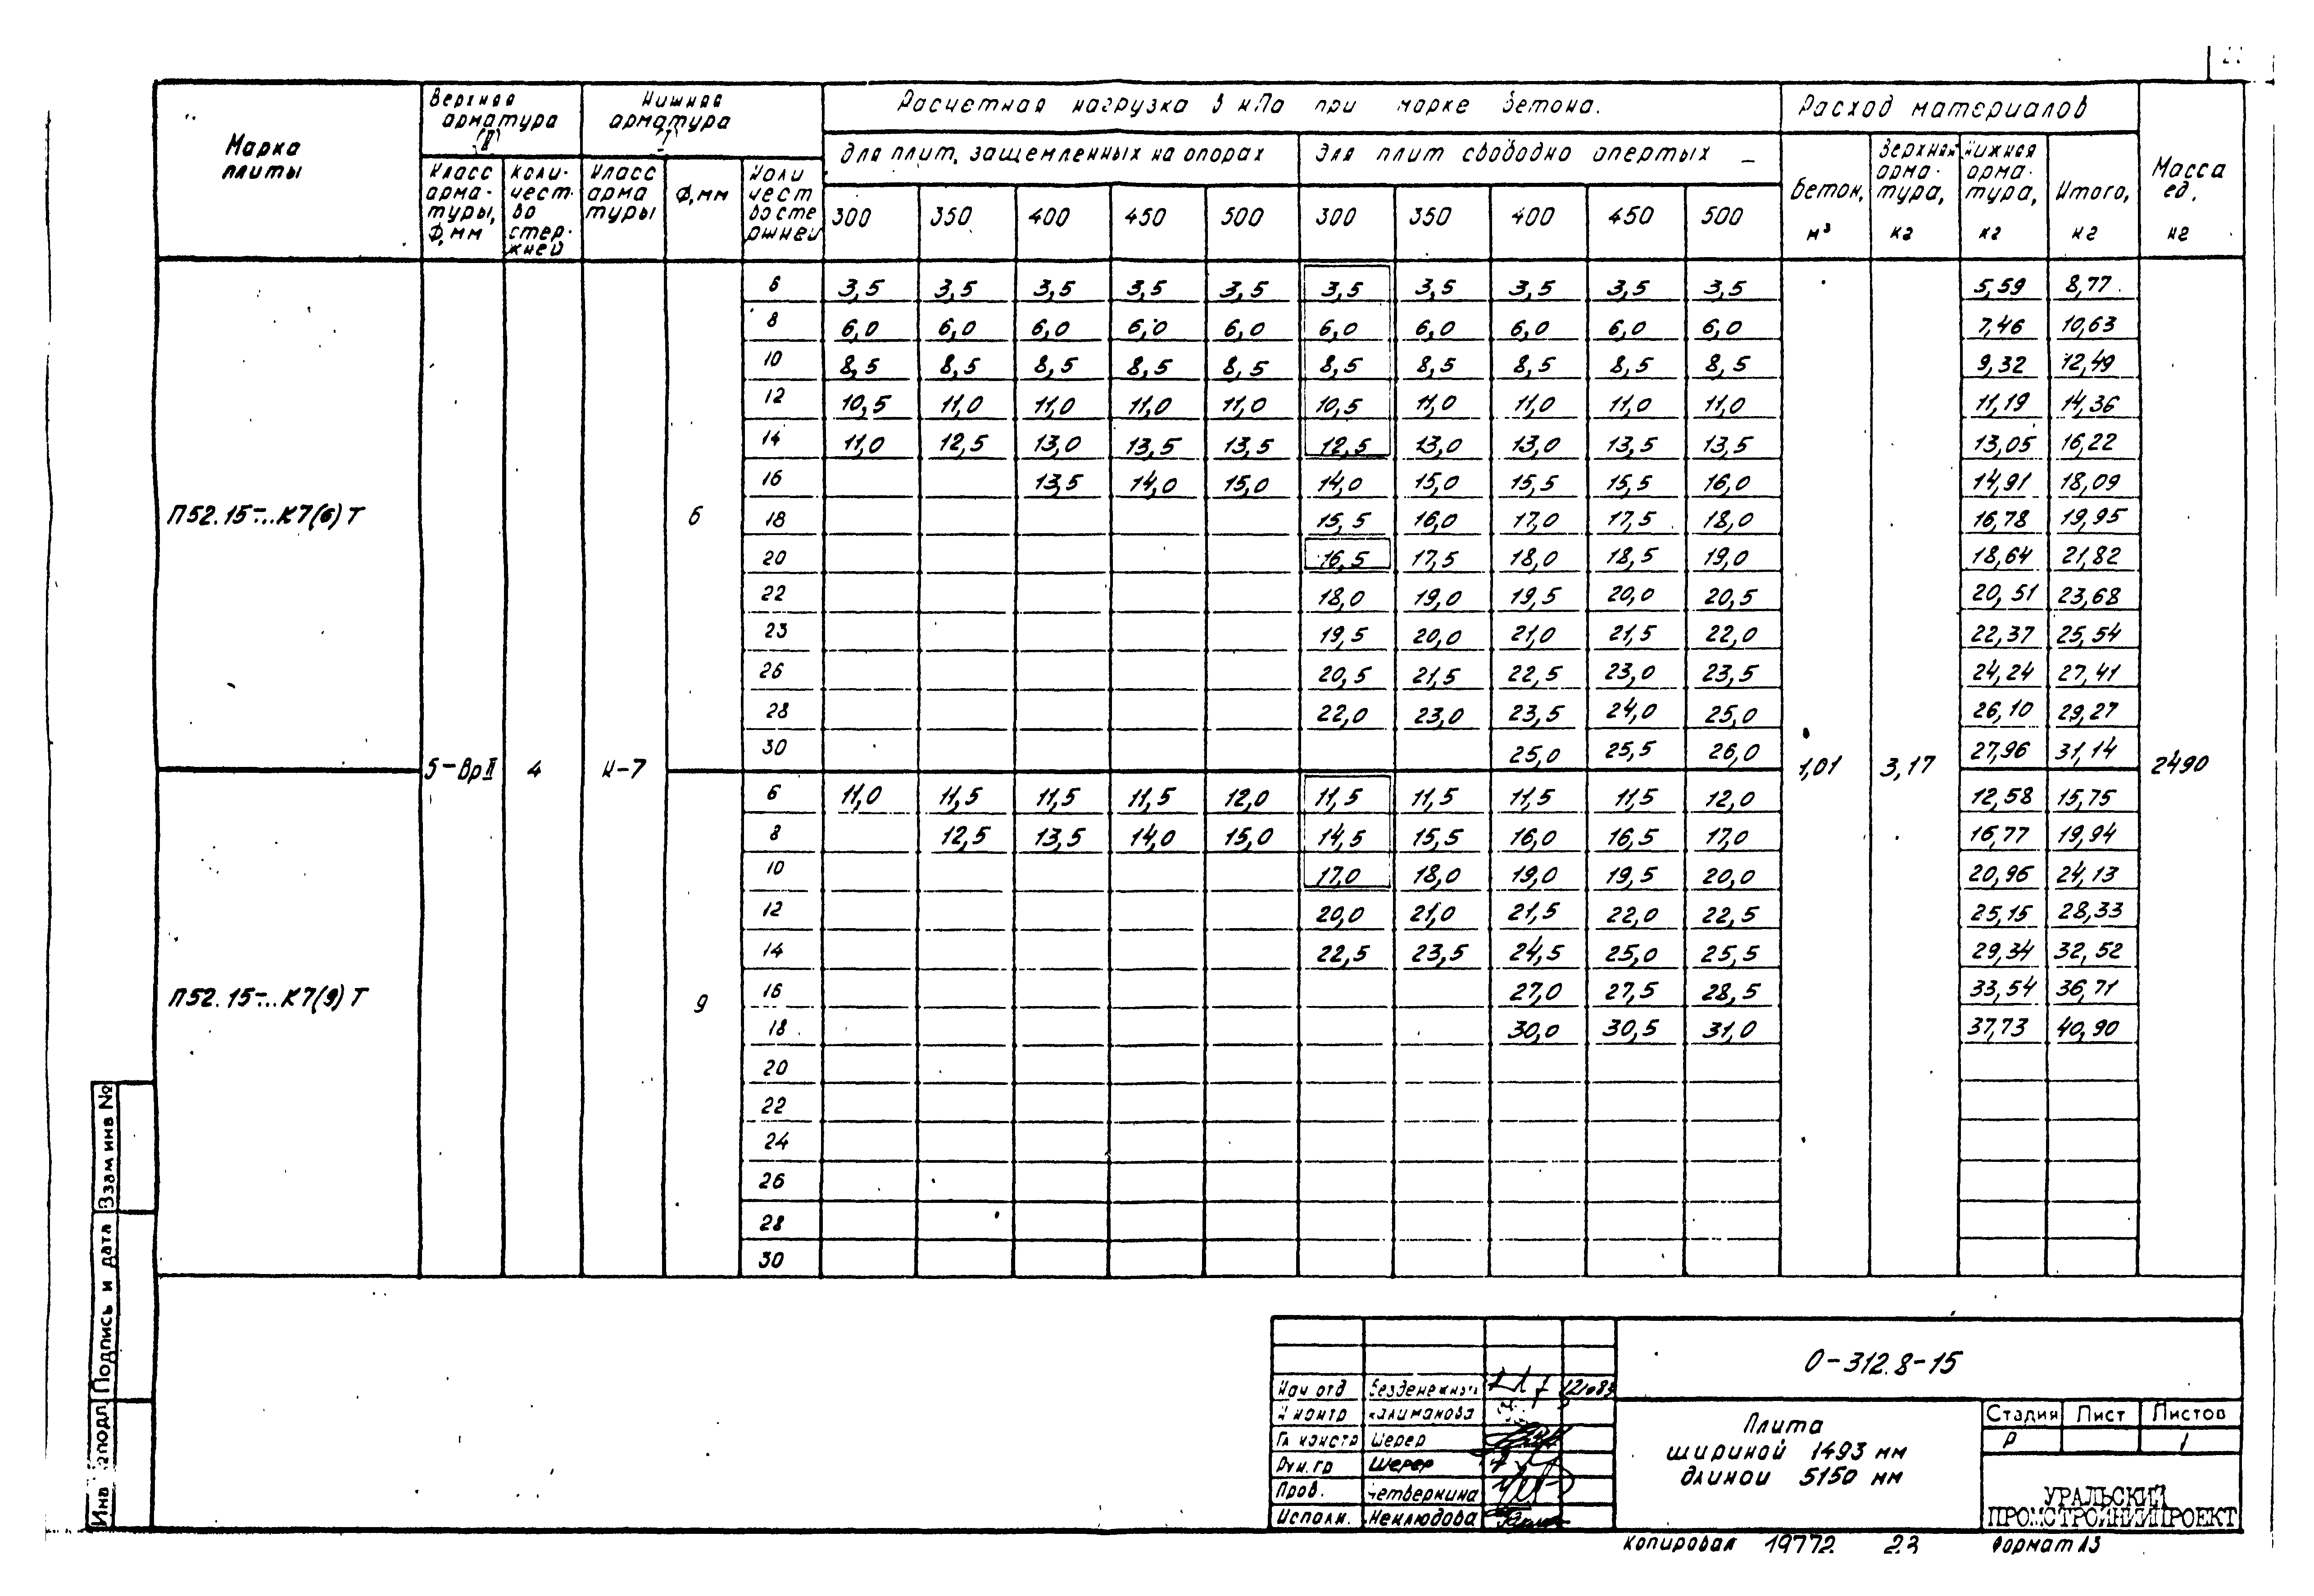 Марка плиты
Верхняя арматура (II)
Нижняя арматура (I)
Расчетная нагрузка в кПа при марке бетона.
Расход материалов
Масса ед. кг
для плит, защемленных на опорах
для плит свободно опертых
Класс арма-туры, Ф, мм
Коли-чест-во стер-жней
Класс арма туры
Ф, мм
Коли чест во сте ржней
300 350 400 450 500 300 350 400 450 500
Бетон, м³
Верхняя арма-тура, кг
Нижняя арма-тура, кг
Итого, кг
П52.15-...К7(6)Т
5-ВрII 4 К-7 6
1,01 3,17 2490
6 3,5 3,5 3,5 3,5 3,5 3,5 3,5 3,5 3,5 3,5 5,59 8,77
8 6,0 6,0 6,0 6,0 6,0 6,0 6,0 6,0 6,0 6,0 7,46 10,63
10 8,5 8,5 8,5 8,5 8,5 8,5 8,5 8,5 8,5 8,5 9,32 12,49
12 10,5 11,0 11,0 11,0 11,0 10,5 11,0 11,0 11,0 11,0 11,19 14,36
14 11,0 12,5 13,0 13,5 13,5 12,5 13,0 13,0 13,5 13,5 13,05 16,22
16 13,5 14,0 15,0 14,0 15,0 15,5 15,5 16,0 14,91 18,09
18 15,5 16,0 17,0 17,5 18,0 16,78 19,95
20 16,5 17,5 18,0 18,5 19,0 18,64 21,82
22 18,0 19,0 19,5 20,0 20,5 20,51 23,68
23 19,5 20,0 21,0 21,5 22,0 22,37 25,54
26 20,5 21,5 22,5 23,0 23,5 24,24 27,41
28 22,0 23,0 23,5 24,0 25,0 26,10 29,27
30 25,0 25,5 26,0 27,96 31,14
П52.15-...К7(9)Т
9
6 11,0 11,5 11,5 11,5 12,0 11,5 11,5 11,5 11,5 12,0 12,58 15,75
8 12,5 13,5 14,0 15,0 14,5 15,5 16,0 16,5 17,0 16,77 19,94
10 17,0 18,0 19,0 19,5 20,0 20,96 24,13
12 20,0 21,0 21,5 22,0 22,5 25,15 28,33
14 22,5 23,5 24,5 25,0 25,5 29,34 32,52
16 27,0 27,5 28,5 33,54 36,71
18 30,0 30,5 31,0 37,73 40,90
20
22
24
26
28
30
Взам инв №
Подпись и дата
Инв № подл
О-312.8-15
Нач отд Безденежных
Н контр Калиманова
Гл констр Шерер
Рук. гр Шерер
Пров. Четверкина
Исполн. Неклюдова
Плита
шириной 1493 мм
длиной 5150 мм
Стадия Лист Листов
Р 1
УРАЛЬСКИЙ
ПРОМСТРОЙНИИПРОЕКТ
Копировал 19772 23 Формат А3